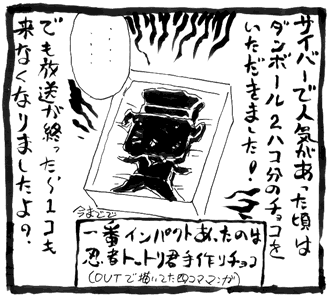 サイバーで人気があった頃は
ダンボール2ハコ分のチョコを
いただきました!
でも放送が終ったら1コも
来なくなりましたよ?
今までで
一番インパクトあったのは
忍者トットリ君手作りチョコ
(OUTで描いてた四コママンガ)